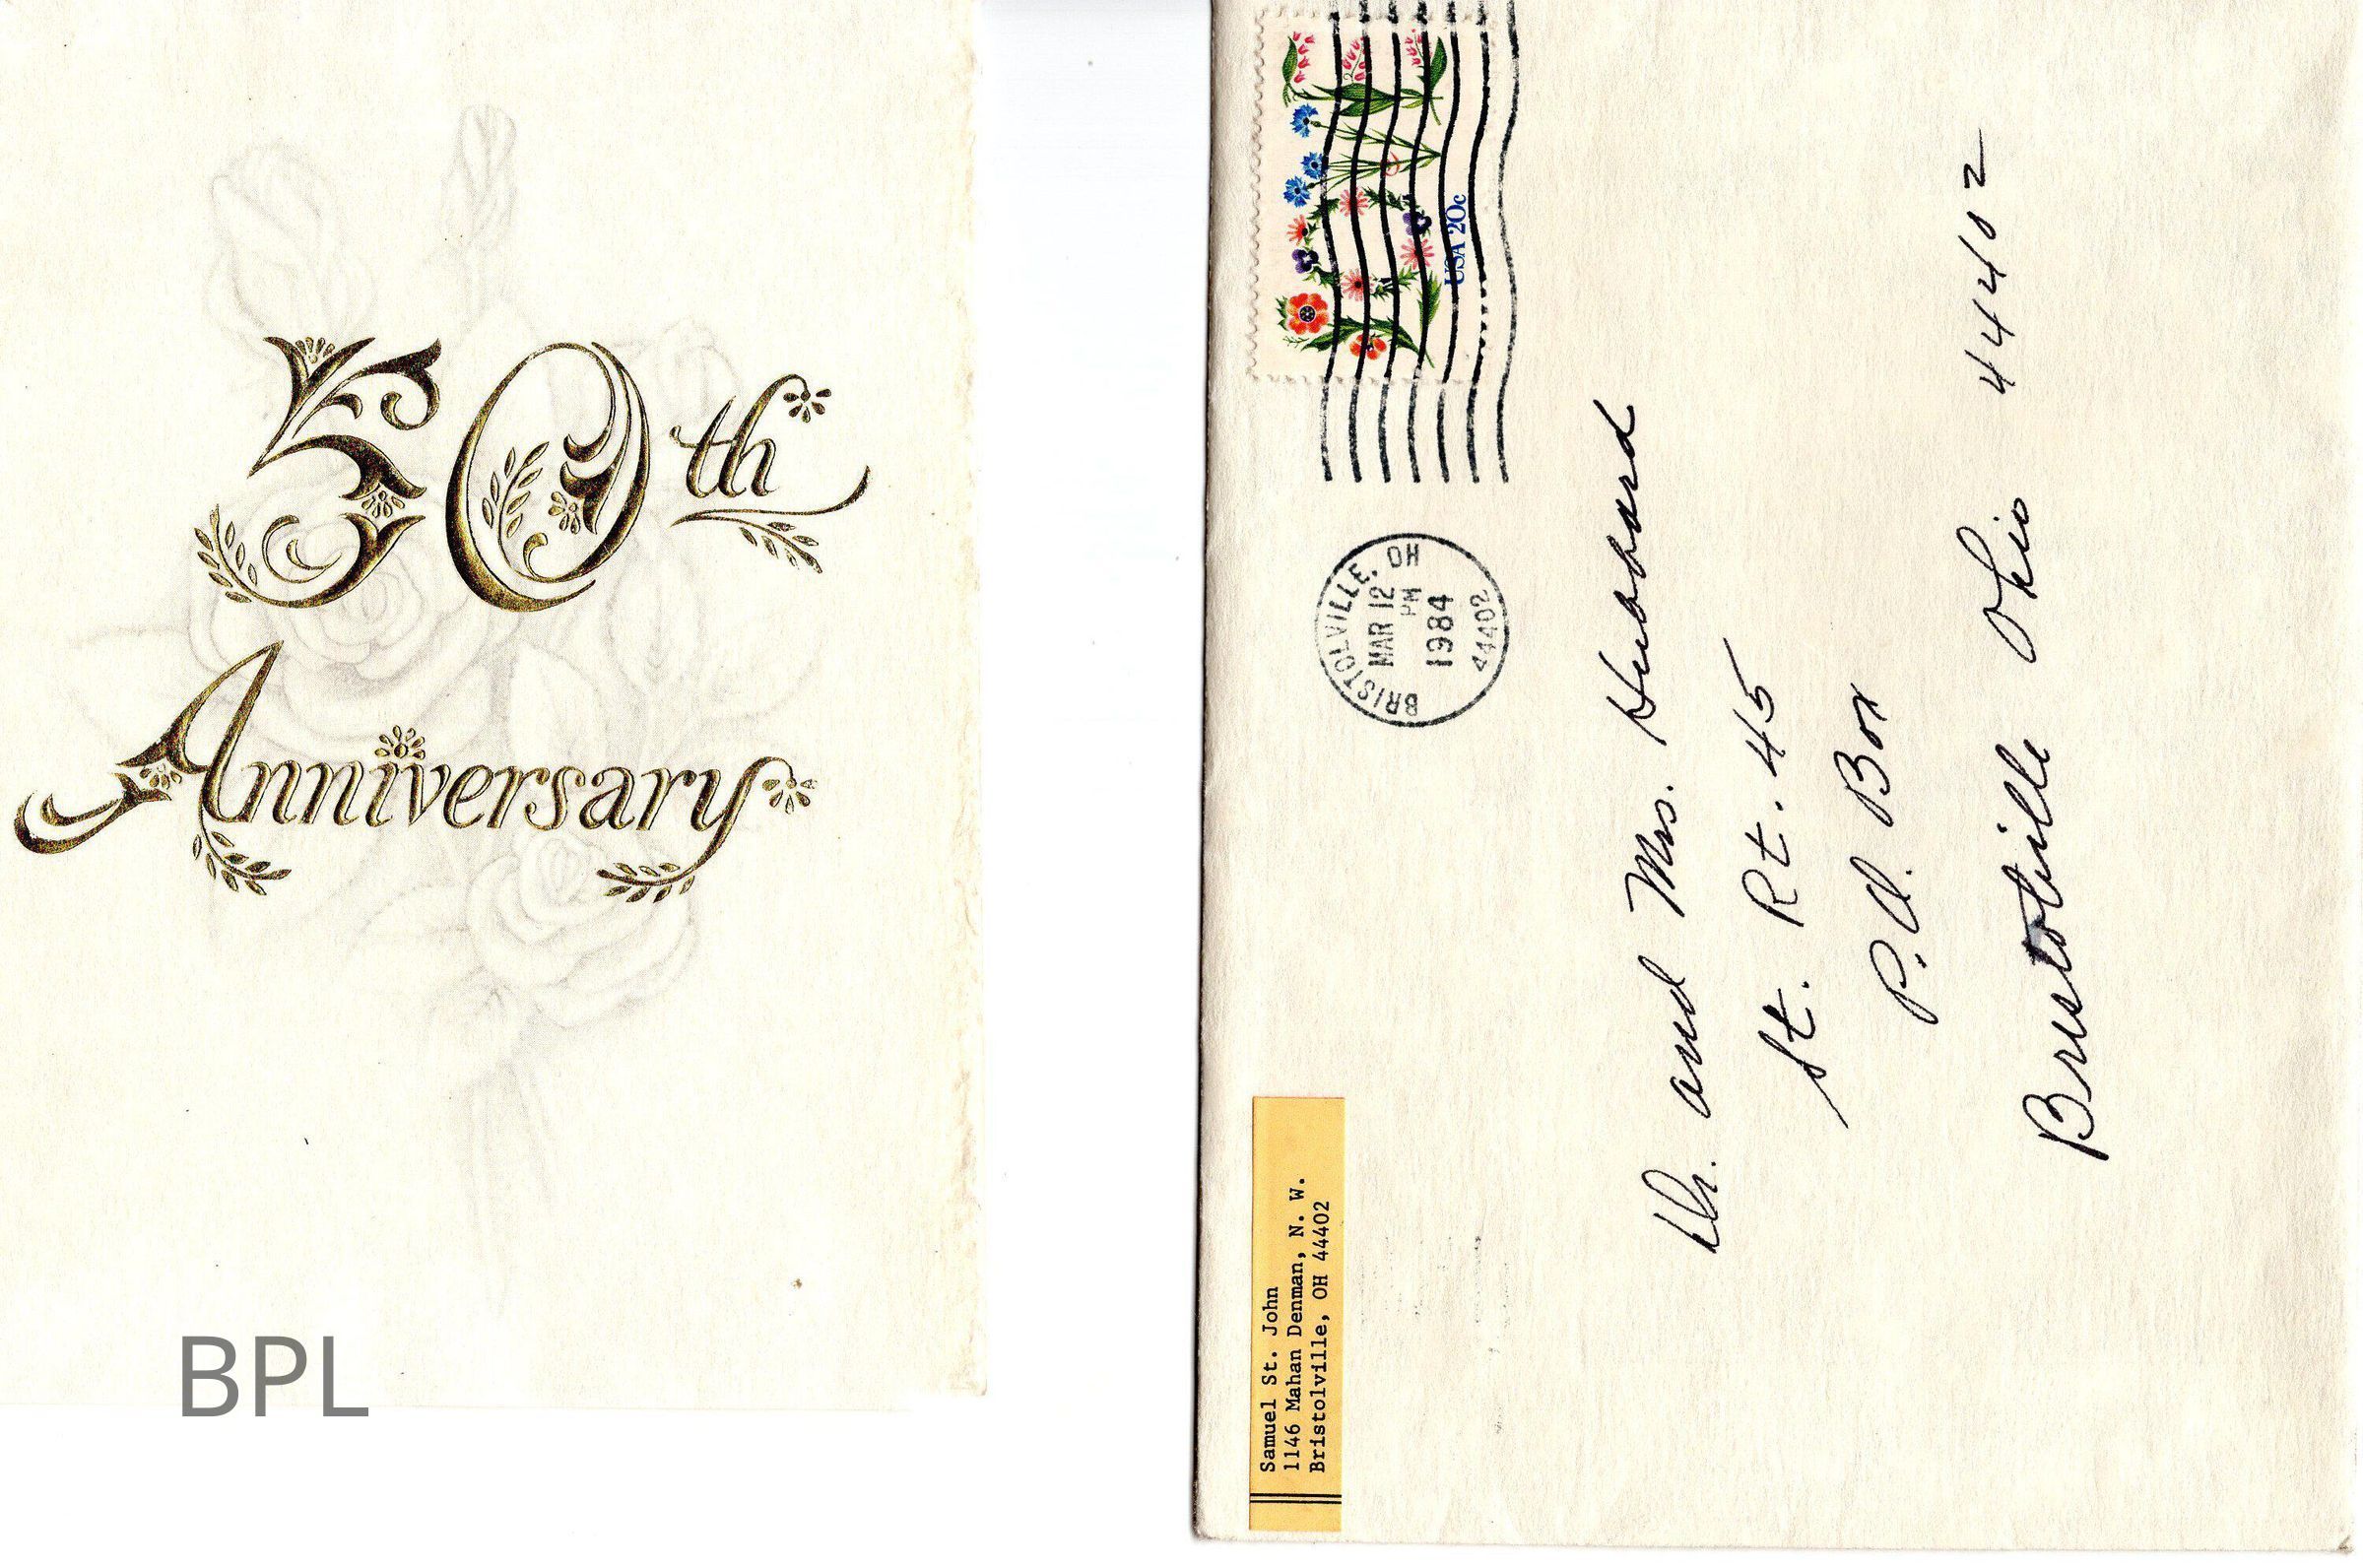 50th
Anniversary
BPL
Samuel St. John
1146 Mahan Denman, N. W.
Bristolville, OH 44402
BRISTOLVILLE, OH
MAR 12
PM
1984
44402
LOVE
USA 20c
Dr. and Mrs. Hubbard
St. Rt. 45
P.O. Box
Bristolville Ohio 44402